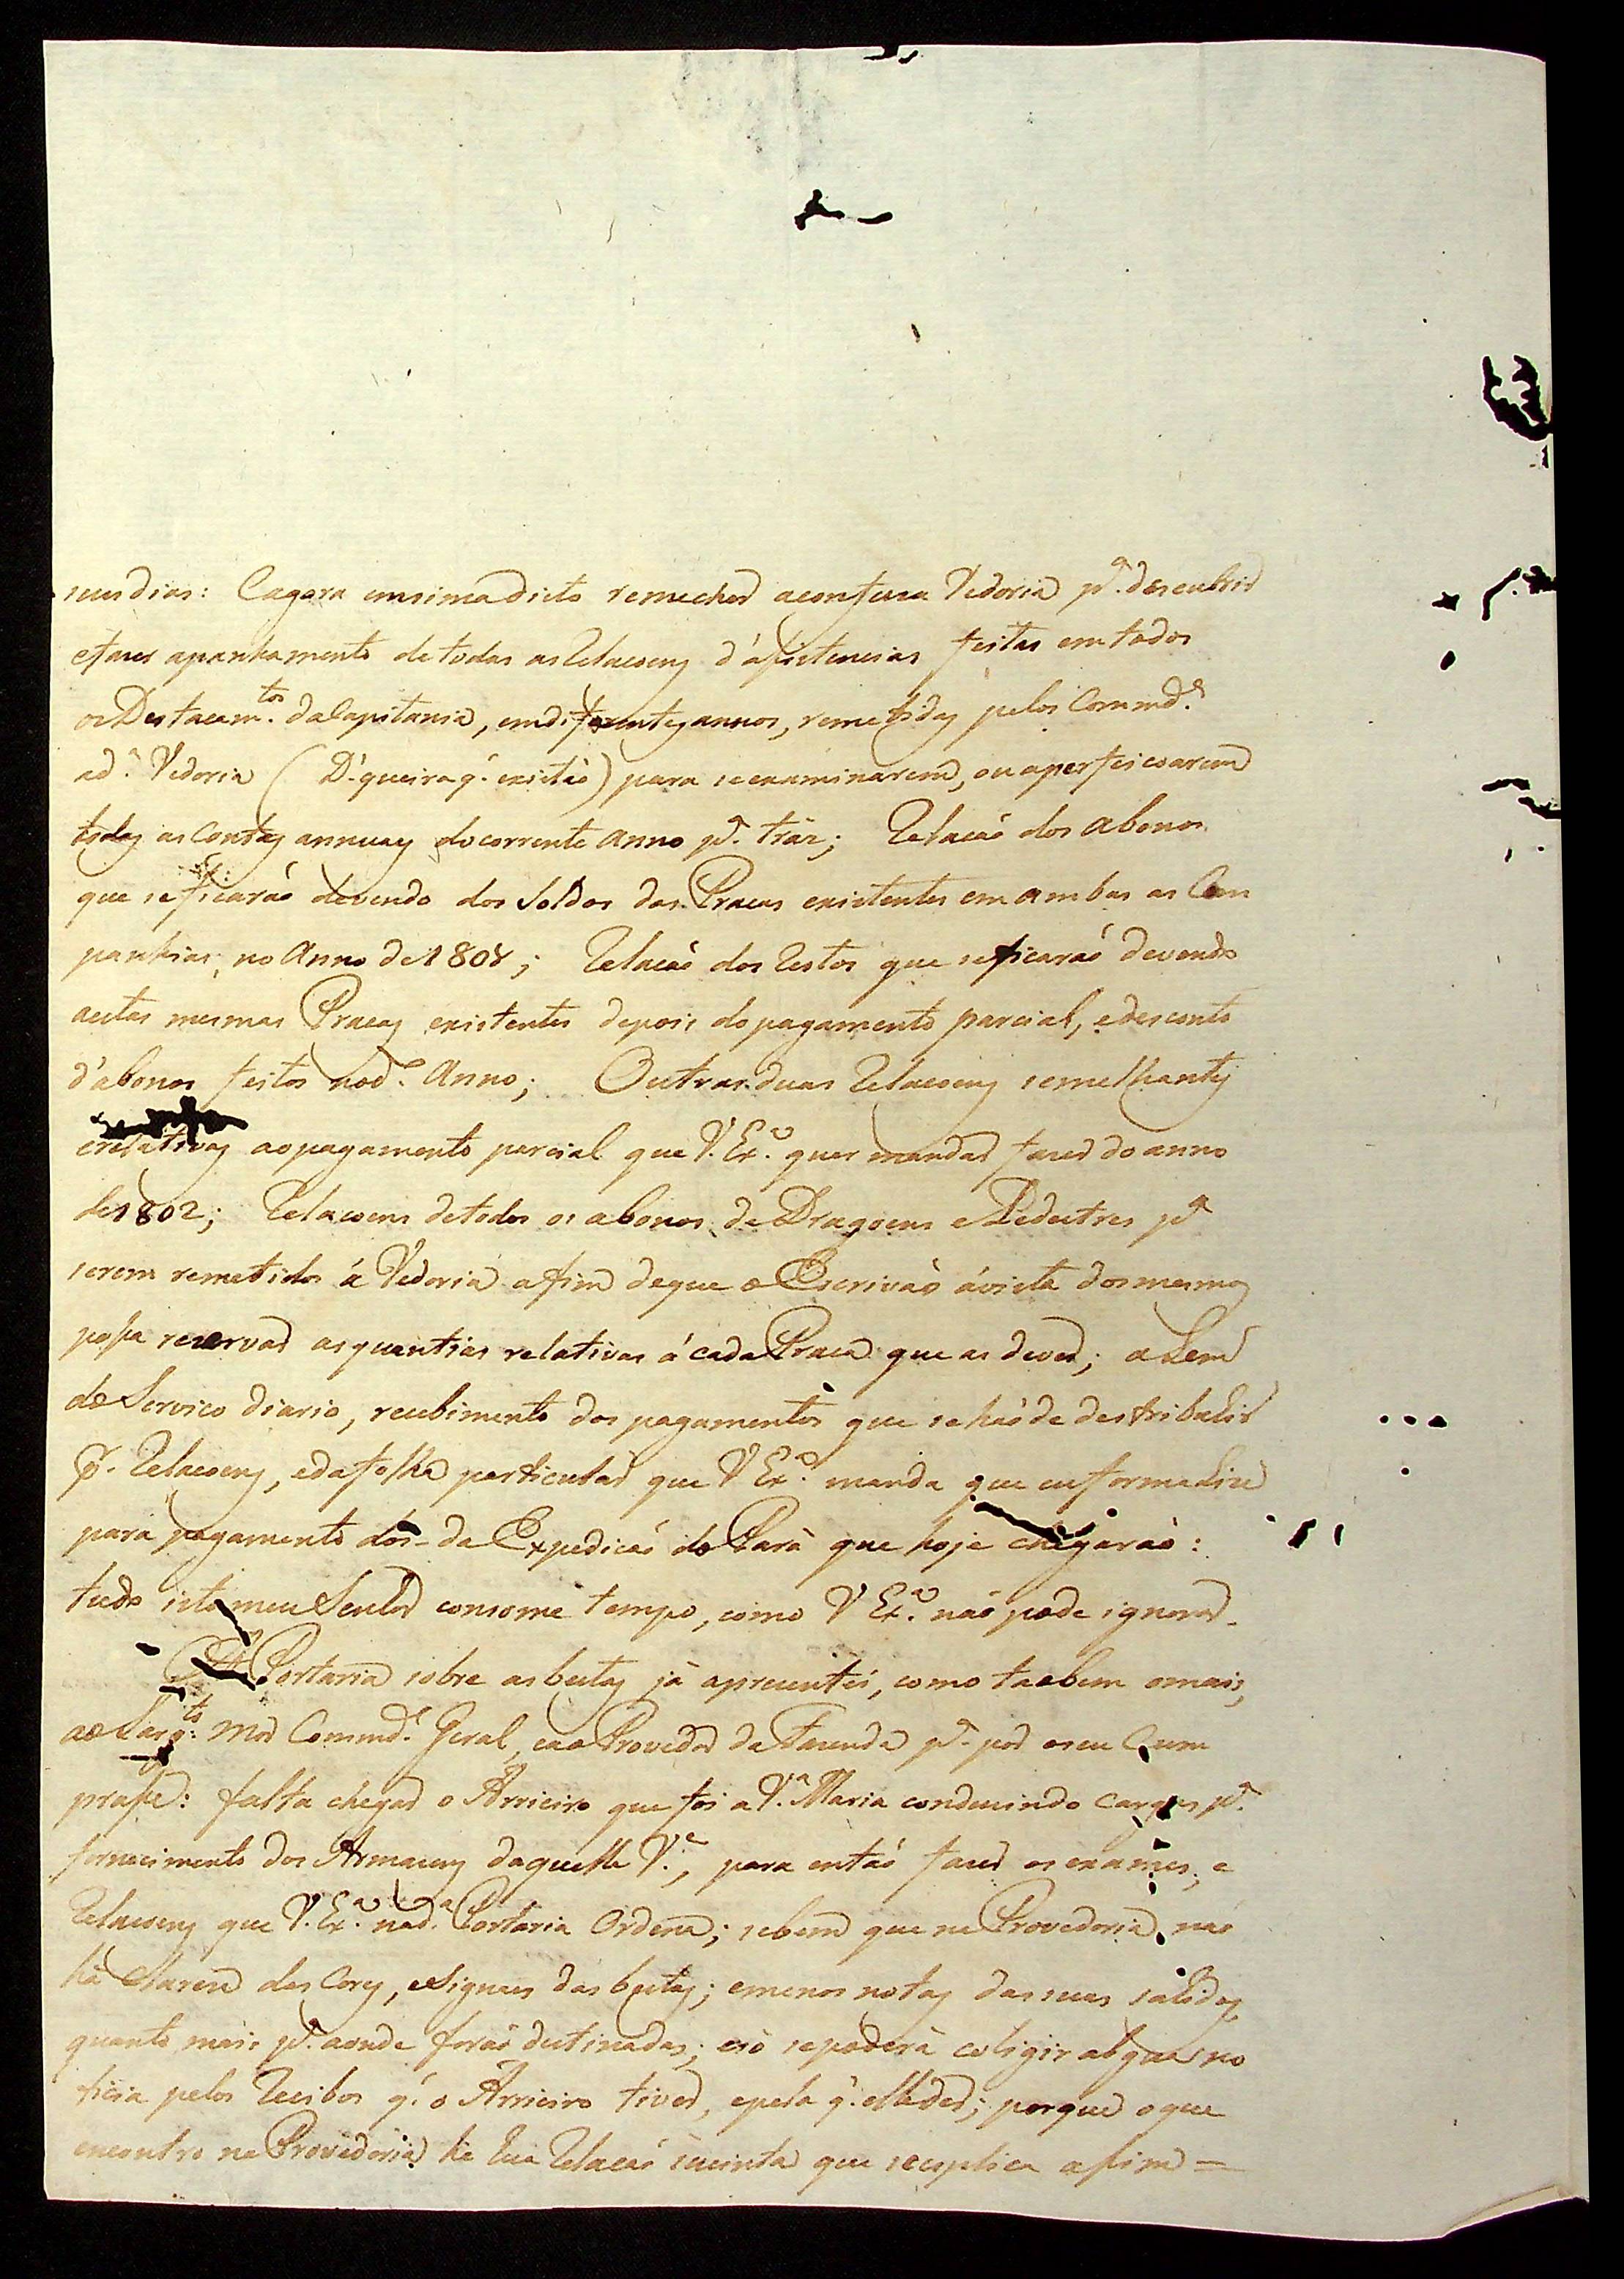 seus dias: E agora emsima disto remecher a confusa Vedoria p.ª descubrir
e fazer apanhamento de todas as Relaçoens d'asistencias feitas em todos
os Destacam.tos da Capitania, em diferentes annos, remetidas pelos Commd.es
a d.ª Vedoria (D.s queira q.' existão) para se examinarem, ou aperfeiçoarem
todas as Contas annuaes do corrente anno p.ª tráz; Relação dos abonos
que se ficarão devendo dos Soldos das Praças existentes em ambas as Com
panhias, no Anno de 1801; Relação dos Restos que se ficarão devendo
a estas mesmas Praças existentes depois do pagamento parcial, e desconto
d'abonos feitos no d.º Anno; Outras duas Relaçoens semelhantes
e relativas ao pagamento parcial que V. Ex.ª quer mandar fazer do anno
de 1802; Relaçoens de todos os abonos de Dragoens e Pedestres p.ª
serem remetidos á Vedoria afim de que o Escrivão ávista dos mesmos
possa reservar as quantias relativas á cada Praça que as dever; alem
do Serviço diario, recebimento dos pagamentos que se hão de destribuhir
p.r Relaçoens, e da folha particular que V Ex.ª manda que eu formalize
para pagamento dos da Expedição do Pará que hoje chegarão:
tudo isto meu Senhor consome tempo, como V Ex.ª não pode ignorar.
Portaria sobre as bestas já aprezentei, como tambem o mais,
ao Sarg.to Mor Commd.e Geral, e ao Provedor da Fazenda p.ª por o seu Cum
prase: falta chegar o Arrieiro que foi a V.ª Maria conduzindo cargas p.ª
fornecimento dos Armazens daquella V.ª, para então fazer os exames, e
Relaçoens que V. Ex.ª na d.ª Portaria Ordena; se bem que na Provedoria não
há clareza das Cores, e Signaes das bestas; e menos notas das suas sahidas,
quanto mais p.ª aonde forão destinadas; e só se poderá coligir algũa no
ticia pelos Recibos q.' o Arrieiro tiver, e pela q.' elle der; porque o que
encontro na Provedoria hé hũa Relação sucinta que se esplica asim =